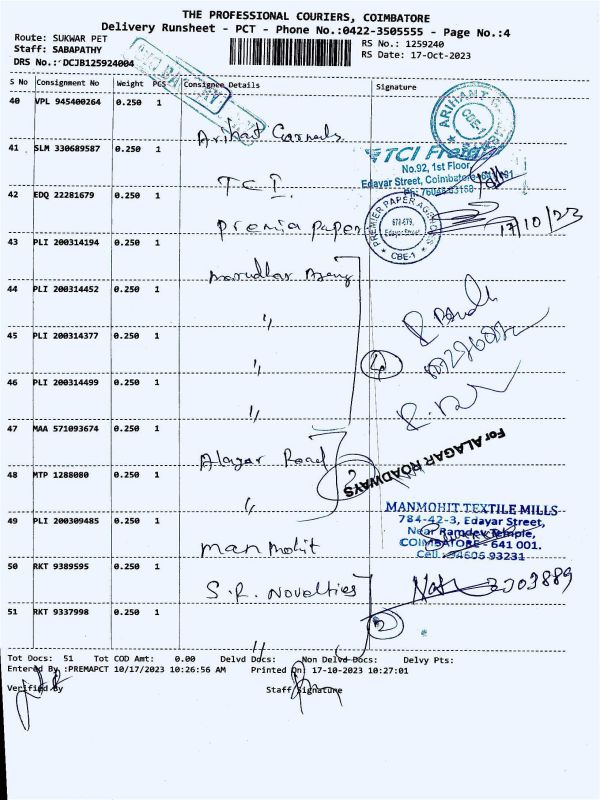 THE PROFESSIONAL COURIERS, COIMBATORE
Delivery Runsheet - PCT - Phone No.:0422-3505555 - Page No.:4
Route: SUKWAR PET
RS No.: 1259240
Staff: SABAPATHY
RS Date: 17-Oct-2023
DRS No.: DCJB125924004
S No Consignment No Weight PCS Consignee Details Signature
40 VPL 945400264 0.250 1
ARIHANT
CBE-1
41 SLM 330689587 0.250 1
TCI Freight
No.92, 1st Floor,
Edayar Street, Coimbatore
TCI
42 EDQ 22281679 0.250 1
premia paper
PREMIER PAPER AGENCIES
Edayar Street,
CBE-1
17/10/23
43 PLI 200314194 0.250 1
44 PLI 200314452 0.250 1
"
45 PLI 200314377 0.250 1
"
4
46 PLI 200314499 0.250 1
"
47 MAA 571093674 0.250 1
Alagar Road
For ALAGAR ROADWAYS
48 MTP 1288080 0.250 1
"
2
49 PLI 200309485 0.250 1
manmohit
MANMOHIT TEXTILE MILLS
784-42-3, Edayar Street,
Near Ramdev Temple,
COIMBATORE - 641 001.
Cell : 94605 93231
50 RKT 9389595 0.250 1
S.R. Novelties
51 RKT 9337998 0.250 1
"
2
Tot Docs: 51 Tot COD Amt: 0.00 Delvd Docs: Non Delvd Docs: Delvy Pts:
Entered By :PREMAPCT 10/17/2023 10:26:56 AM Printed On: 17-10-2023 10:27:01
Verified By Staff Signature